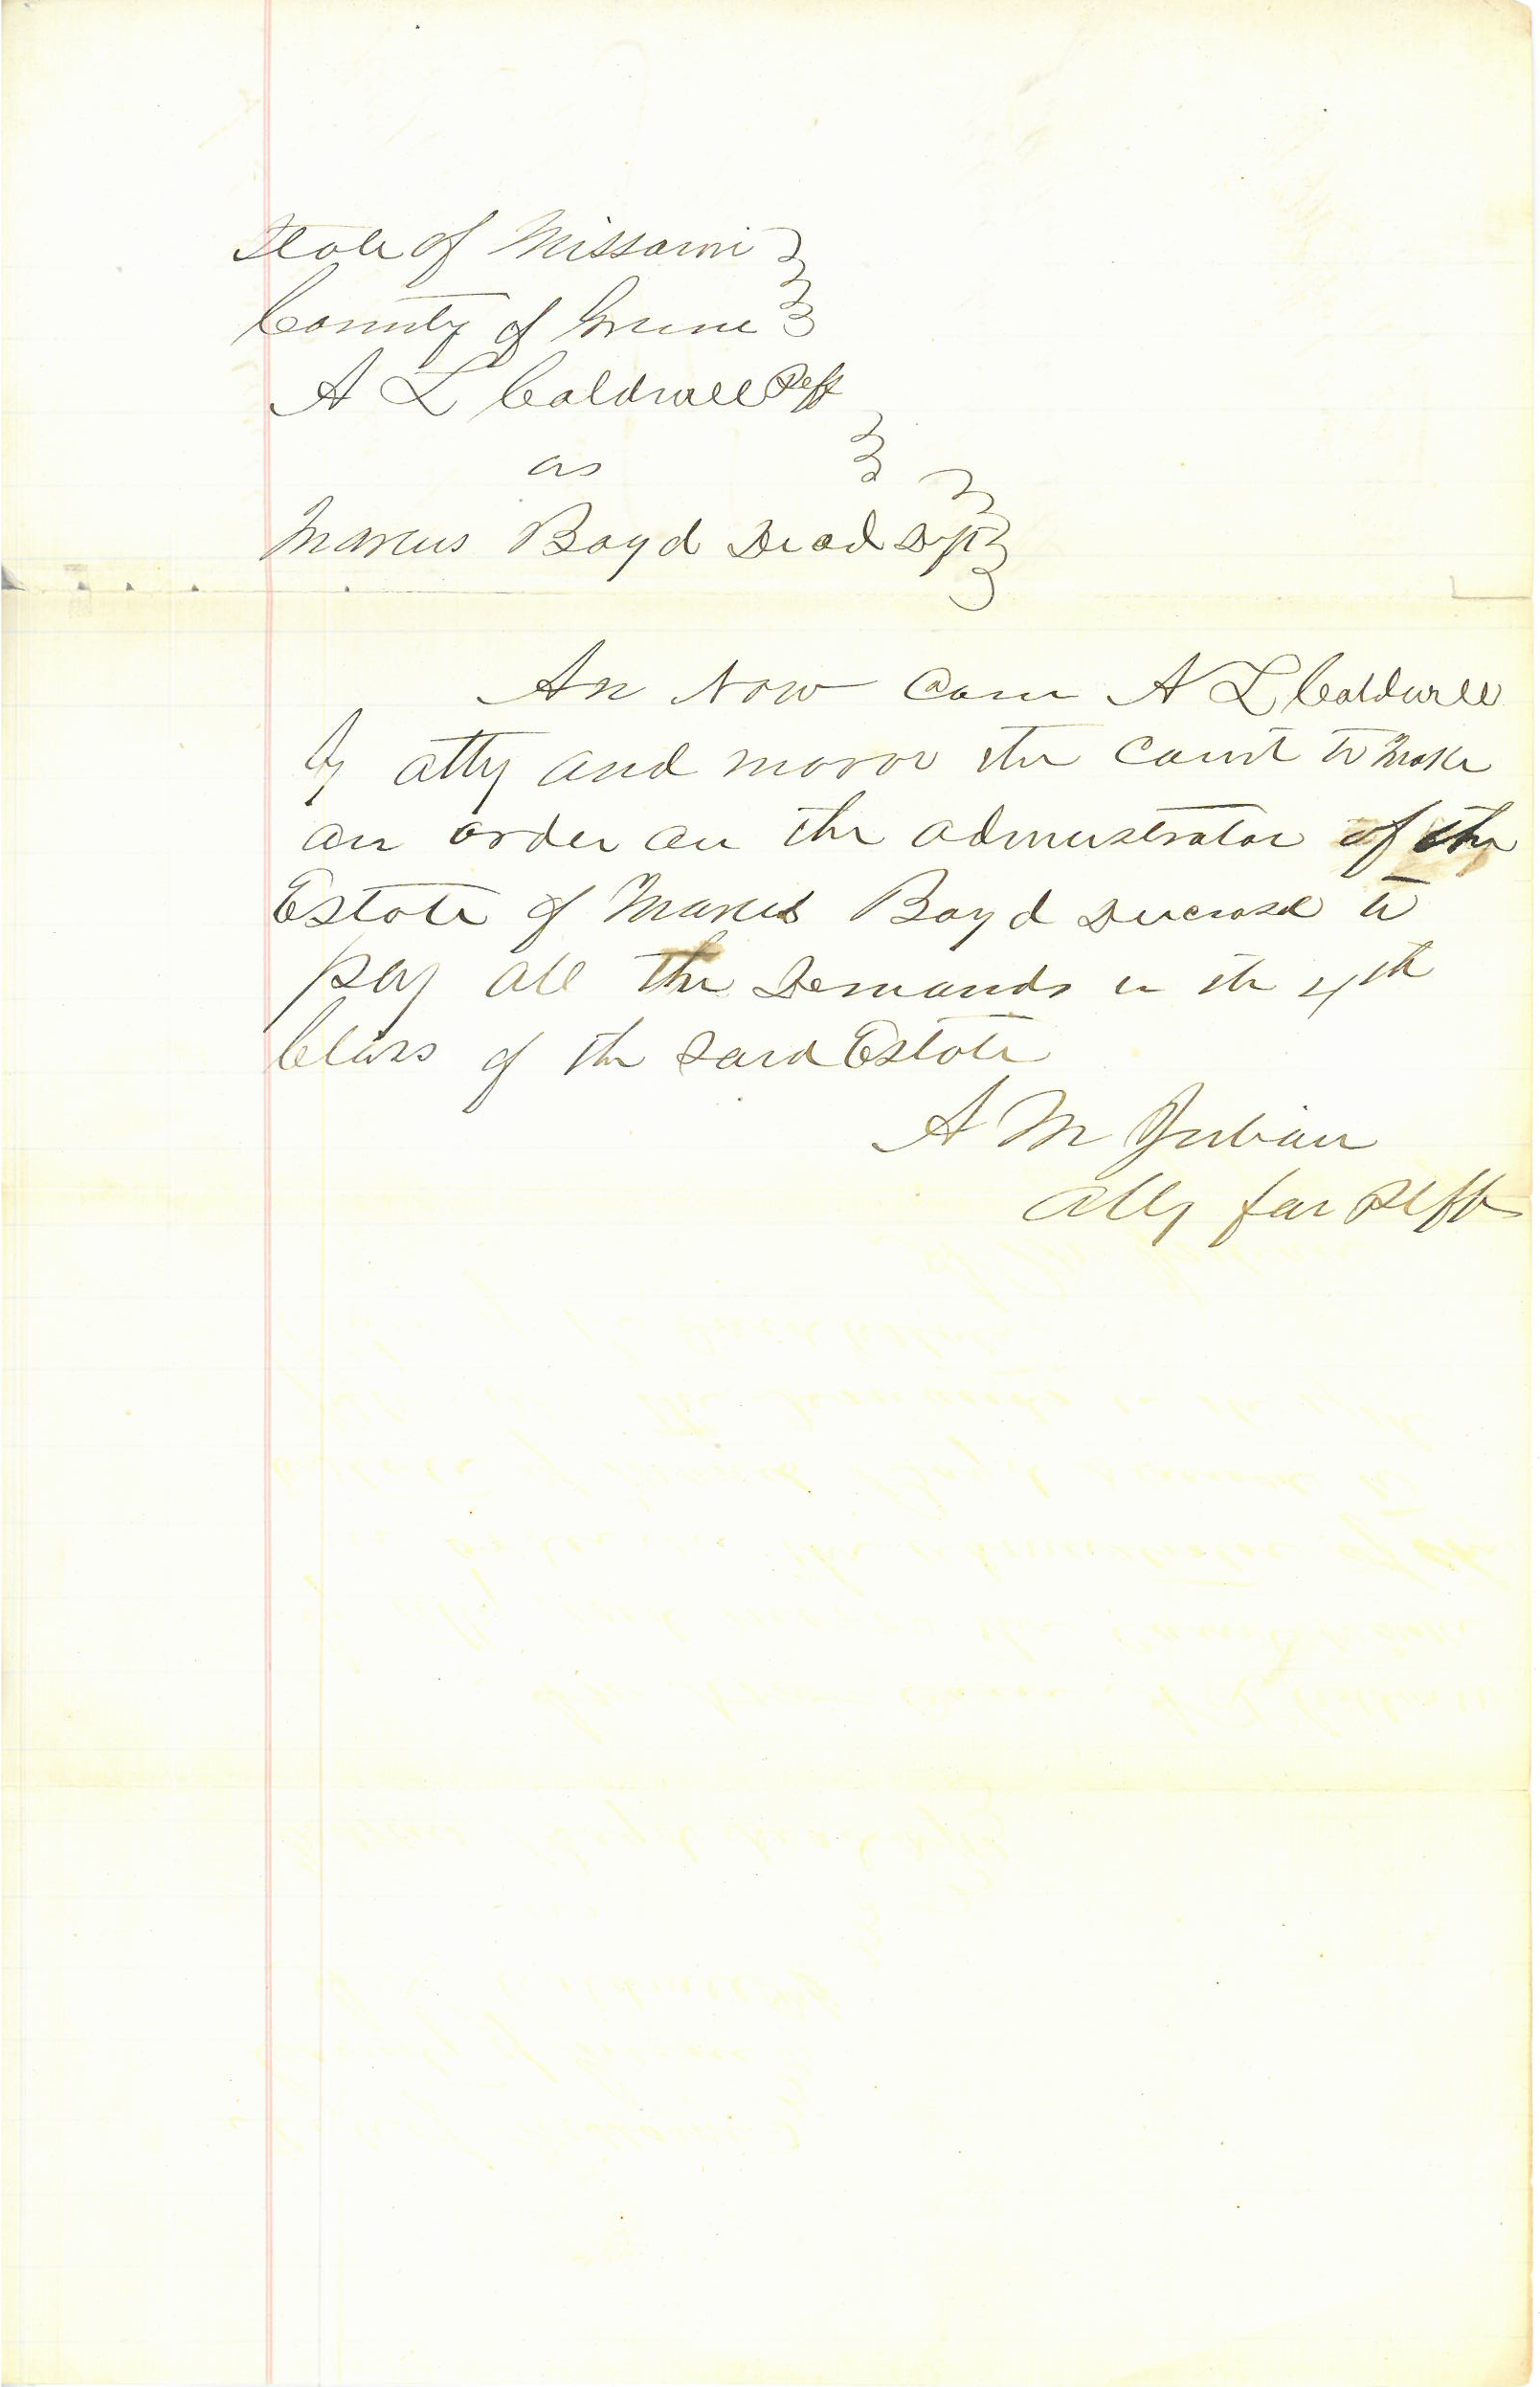 State of Missouri
County of Greene
A L Caldwell Plff
vs
Marcus Boyd Decd Deft
An Now Com A L Caldwell
by atty and moves the Court to Make
an order on the admnistrator of the
Estate of Marcus Boyd Deceased to
pay all the Demands in the 4th
Class of the said Estate
A M Julian
Atty for Plff